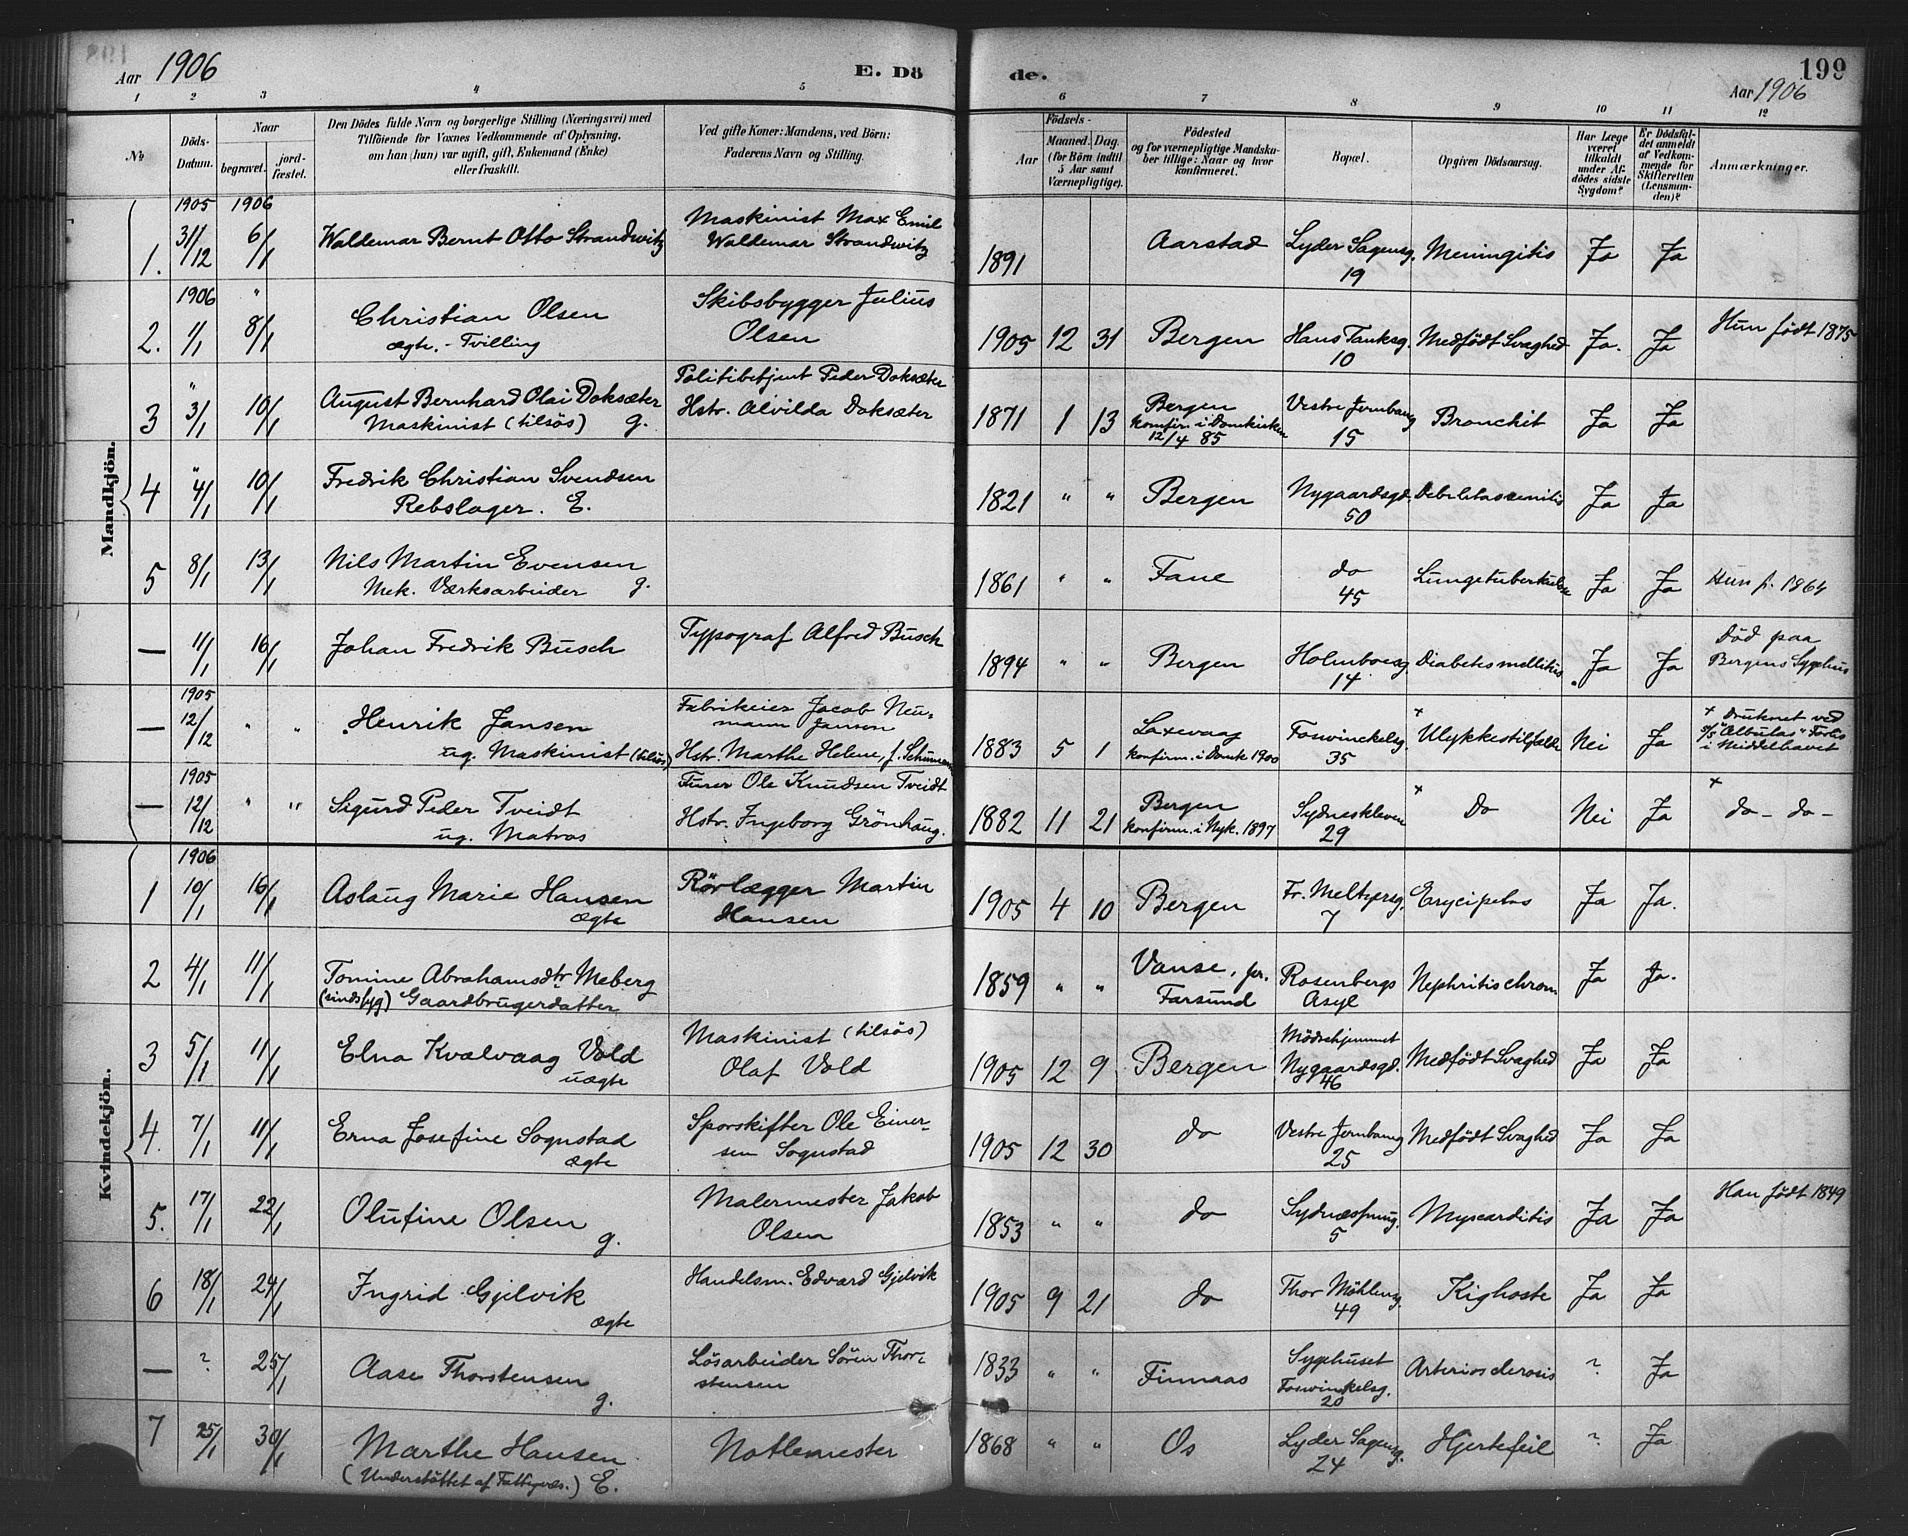 Aar 1906
E. Dö
de.
199
Aar 1906
1 2 3 4 5 6 7 8 9 10 11 12
No
Döds-Datum.
Naar
begravet.
jord-fæstet.
Den Dödes fulde Navn og borgerlige Stilling (Næringsvei) med
Tilföiende for Voxnes Vedkommende af Oplysning,
om han (hun) var ugift, gift, Enkemand (Enke)
eller fraskilt.
Ved gifte Koner: Mandens, ved Börn:
Faderens Navn og Stilling.
Födsels-
Aar
Maaned. Dag.
(for Börn indtil
5 Aar samt
Værnepligtige).
Födested
og for værnepligtige Mandska-
ber tillige: Naar og hvor
konfirmeret.
Bopæl.
Opgiven Dödsaarsag.
Har Læge
været
tilkaldt
under Af-
dödes sidste
Sygdom?
Er Dödsfal-
det anmeldt
af Vedkom-
mende for
Skifteretten
(Lensman-
den)?
Anmærkninger.
Mandkjön.
1905 1906
1. 31/12 6/1 Waldemar Bernt Otto Strandwitz Maskinist Max Emil
Waldemar Strandwitz 1891 Aarstad Lyder Sagensg.
19 Meningitis Ja Ja
1906 "
2. 1/1 8/1 Christian Olsen
ægte. - Tvilling Skibsbygger Julius
Olsen 1905 12 31 Bergen Hans Tanksg.
10 Medfödt Svaghed Ja. Ja Hun födt 1875
"
3 3/1 10/1 August Bernhard Olai Doksæter
Maskinist (tilsös) g. Politibetjent Peder Doksæter
Hstr. Alvilda Doksæter 1871 1 13 Bergen
konfir. i Domkirken
12/4 85 Vestre Jernbaneg
15 Bronchit Ja Ja
"
4 4/1 10/1 Fredrik Christian Svendsen
Rebslager. E. 1821 " " Bergen Nygaardsgd.
50 Debilitas senilis Ja Ja
5 8/1 13/1 Nils Martin Evensen
Mek. Værksarbeider g. 1861 " " Fane do
45 Lungetuberkulose Ja Ja Hun f. 1864
— 11/1 16/1 Johan Fredrik Busch Typograf Alfred Busch 1894 " " Bergen Holmboeg.
14 Diabetes mellitus Ja Ja Död paa
Bergens Sygehus
1905
— 12/12 " " Henrik Jansen
ug. Maskinist (tilsös) Fabrikeier Jacob Neu-
mann Jansen
Hstr. Marthe Helene, f. Schumann 1883 5 1 Laxevaag
konfirm. i Domk 1900 Fosvinckelsg.
35 + Ulykkestilfælde Nei Ja + Druknet ved
D/S "Albulas" Forlis
i Middelhavet
1905
— 12/12 " " Sigurd Peder Tveidt
ug. Matros Furer Ole Knudsen Tveidt
Hstr. Ingeborg Grönhaug. 1882 11 21 Bergen
konfirm. i Nyk. 1897 Sydneskleven
29 + Do Nei Ja + do - do -
Kvindekjön.
1906
1 10/1 16/1 Aslaug Marie Hansen
ægte Rörlægger Martin
Hansen 1905 4 10 Bergen Fr. Meltzersg.
7 Erycipelas Ja Ja.
2 4/1 11/1 Tomine Abrahamsdtr Meberg
(sindsyg) Gaardbrugerdatter 1859 " " Vanse, pr.
Farsund Rosenbergs
Asyl Nephritis chron Ja Ja.
3 5/1 11/1 Elna Kvalvaag Vold
uægte Maskinist (tilsös)
Olaf Vold 1905 12 9 Bergen Mödrehjemmet
Nygaardsgd.
46 Medfödt Svaghed Ja Ja
4. 7/1 11/1 Erna Josefine Sognstad
ægte Sporskifter Ole Einer-
sen Sognstad 1905 12 30 do Vestre Jernbaneg
25 Medfödt Svaghed Ja Ja
5. 17/1 22/1 Olufine Olsen
g. Malermester Jakob
Olsen 1853 " " do Sydnæssmug.
5 Myocarditis Ja Ja Han födt 1849
6 18/1 24/1 Ingrid Gjelvik
ægte Handelsm. Edvard Gjelvik 1905 9 21 do Thor Möhlensg.
49 Kighoste Ja Ja
— ? 25/1 Aase Thorstensen
g. Lösarbeider Sören Thor-
stensen 1833 " " Finnaas Sygehuset
Fosvinkelsg.
20 Arteriosclerosis ? Ja
7 25/1 30/1 Marthe Hansen
(Understöttet af Fattigvæs.) E. Notlemester 1868 " " Os Lyder Sagensg.
24 Hjertefeil ? Ja